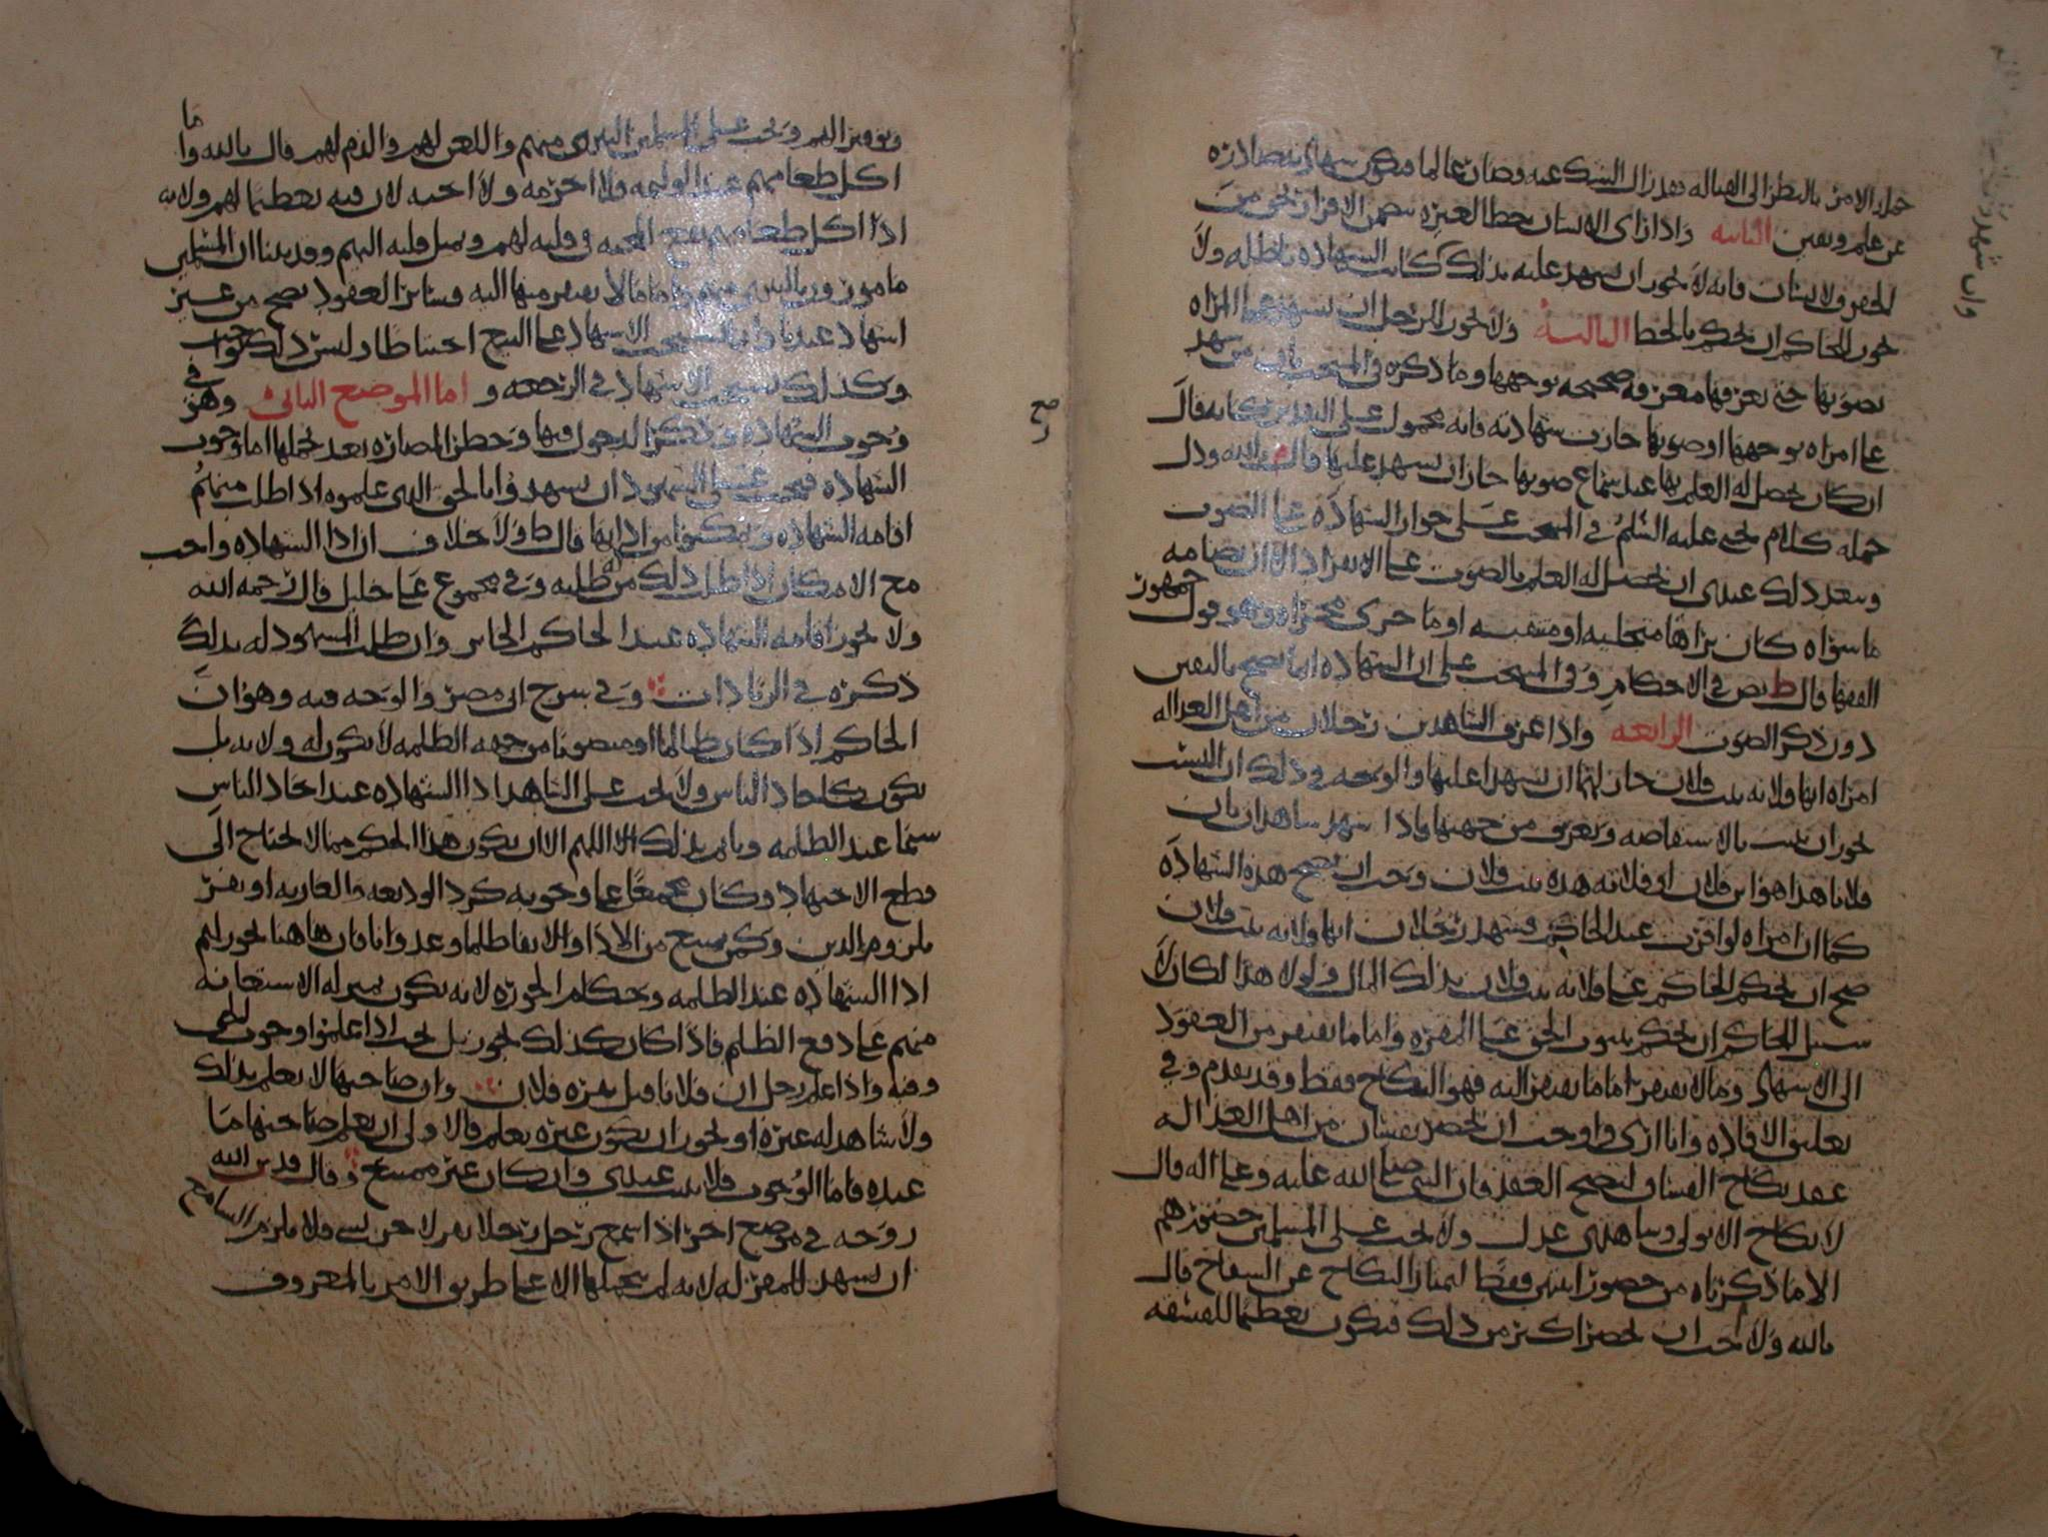 جملة الامر بالنظر الى القباله فقد زال الشك عنه وصار عالما فتكون شهادته صادرة
عن علم ويقين الثانيه واذا راى الانسان خطا لغيره يتضمن الاقرار بحق من
الحقوق لانسان فانه لا يجوز ان يشهد عليه بذلك كانت الشهادة باطله ولا
يجوز للحاكم ان يحكم بالخط الثالثة ولا يجوز للرجل ان يشهد على المراه
بصوتها حتى يعرفها معرفه صحيحه بوجهها وما ذكره في المنتخب من شهد
على امراه بوجهها او صوتها جازت شهادته فانه محمول على انه قال
ان كان يحصل له العلم بها عند سماع صوتها جاز ان يشهد عليها قال م بالله ودل
جمله كلام يحيى عليه السلم في المنتخب على جواز الشهاده على الصوت
ويبعد ذلك عندي ان يحصل له العلم بالصوت على الانفراد الا ان يضامه
ما سواه كان يراها متجلية او متنقبه او ما جرى مجراه وهو قول جمهور
الفقها قال ط نص في الاحكام وفي المنتخب على ان الشهاده انما تصح باليقين
دون ذكر الصوت الرابعه واذا عرف الشاهدين رجلان من اهل العداله
امراه انها فلانه بنت فلان جاز لهما ان يشهدا عليها والوجه في ذلك ان النسب
يجوز ان يثبت بالاستفاضه ويعرف من جهتها واذا شهد شاهدان بان
فلانا هذا هو ابن فلان او فلانه هذه بنت فلان وجب ان تصح هذه الشهاده
كما ان امراه لو اقرت عند الحاكم فشهد رجلان انها فلانه بنت فلان
صح ان يحكم الحاكم على فلانه بنت فلان بذلك المال ولولا هذا لكان لا
سبيل للحاكم ان يحكم بثبوت الحق على المقره واما ما يفتقر من العقود
الى الاشهاد وما لا يفتقر اما ما يفتقر اليه فهو النكاح فقط وقد تقدم وفي
تعليق الافاده وانا ارى واوجب ان يحضر نفسان من اهل العداله
عقد نكاح الفساق ليصح العقد فان النبي صلى الله عليه وعلى اله قال
لا نكاح الا بولي وشاهدي عدل ولا يجب على المسلمين حضورهم
الا ما ذكرناه من حضور اثنين فقط ليمتاز النكاح عن السفاح قال
بالله ولا احب ان يحضر اكثر من ذلك فيكون تعظيما للفسقه
وان شهد
وتوقيرا لهم ويجب على المسلمين التبري منهم واللعن لهم والذم لهم قال بالله وما
اكل طعامهم عند الوليمه فلا احرمه ولا احبه لان فيه تعظيما لهم ولانه
اذا اكل طعامهم تقع المحبه في قلبه لهم ويميل قلبه اليهم وقد بينا ان المسلمين
مامورون بالتبري منهم واما ما لا يفتقر منها اليه فسائر العقود يصح من غير
اشهاد عندنا وانما يستحب الاشهاد على البيع احتياطا وليس ذلك بواجب
وكذلك يستحب الاشهاد في الرجعه و اما الموضع الثاني وهو في
وجوب الشهادة وذكر الدخول فيها وحظر المضاره بعد تحملها اما وجوب
الشهاده فيجب على الشهود ان يشهدوا بالحق الذي علموه اذا طلب منهم
اقامه الشهاده وتمكنوا من ادايها قال ط ولا خلاف ان ادا الشهاده واجب
مع الامكان اذا طلب ذلك من طلبه وفي مجموع علي خليل قال رحمه الله
ولا يجوز اقامه الشهاده عند الحاكم الجاير وان طلب المشهود له بذلك
ذكره في الزيادات وفي شرح ابي مضر والوجه فيه وهو ان
الحاكم اذا كان ظالما او منصوبا من جهه الظلمه لا يكون له ولايه بل
يكون كاحاد الناس ولا يجب على الشاهد ادا الشهاده عند احاد الناس
سيما عند الظلمه وياثم بذلك اللهم الا ان يكون هذا الحكم مما لا يحتاج الى
قطع الاجتهاد وكان مجمعا على وجوبه كرد الوديعه والعاريه او يقر
بلزوم الدين ولكن يمتنع من الادا والايفا ظلما وعدوانا فان هاهنا يجوز لهم
ادا الشهاده عند الظلمه وحكام الجوره لانه يكون بمنزله الاستعانه
منهم على دفع الظلم فاذا كان كذلك يجوز بل يجب اذا علموا وجوب الحق
وفيه واذا علم رجل ان فلانا قبل بقره فلان وان صاحبها لا يعلم بذلك
ولا شاهد له غيره او يجوز ان يكون غيره يعلم فالاولى ان يعلم صاحبها ما
عنده فاما الوجوب فلا يثبت عندي وان كان غير ممتنع وقال قدس الله
روحه في موضع اخر اذا سمع رجل رجلا يقر لاخر بشي فلا يلزم السامع
ان يشهد للمقر له لانه لم يتحملها الا على طريق الامر بالمعروف
صح